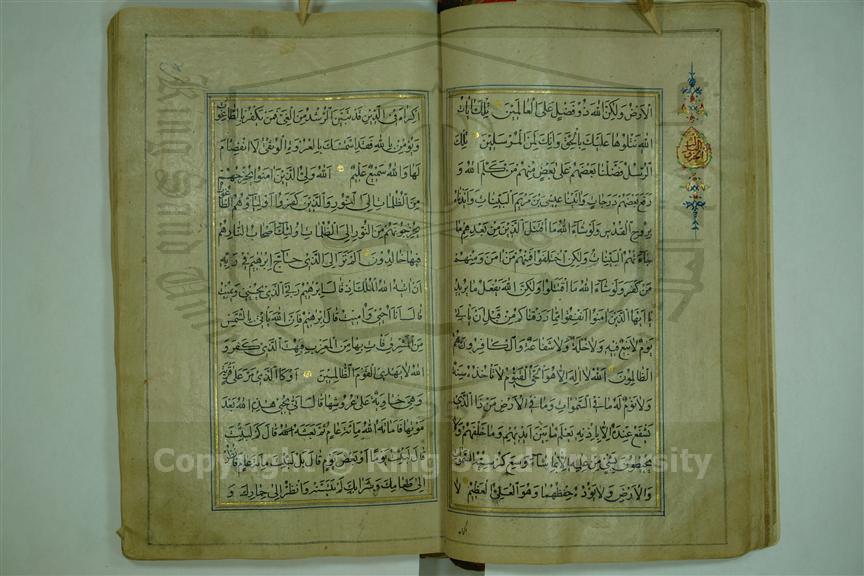 الارض ولكن الله ذو فضل على العالمين تلك ايات
الله نتلوها عليك بالحق وانك لمن المرسلين تلك
الرسل فضلنا بعضهم على بعض منهم من كلم الله و
رفع بعضهم درجات واتينا عيسى بن مريم البينات وايدناه
بروح القدس ولو شاء الله ما اقتتل الذين من بعدهم من بعد ما
جاءتهم البينات ولكن اختلفوا فمنهم من امن ومنهم
من كفر ولو شاء الله ما اقتتلوا ولكن الله يفعل ما يريد
يا ايها الذين امنوا انفقوا مما رزقناكم من قبل ان ياتي
يوم لا بيع فيه ولا خلة ولا شفاعة والكافرون هم
الظالمون الله لا اله الا هو الحي القيوم لا تاخذه سنة
ولا نوم له ما في السموات وما في الارض من ذا الذي
يشفع عنده الا باذنه يعلم ما بين ايديهم وما خلفهم ولا
يحيطون بشئ من علمه الا بما شاء وسع كرسيه السموات
والارض ولا يؤده حفظهما وهو العلي العظيم لا
اكراه في الدين قد تبين الرشد من الغي فمن يكفر بالطاغوت
ويؤمن بالله فقد استمسك بالعروة الوثقى لا انفصام
لها والله سميع عليم الله ولي الذين امنوا يخرجهم
من الظلمات الى النور والذين كفروا اولياؤهم الطاغوت
يخرجونهم من النور الى الظلمات اولئك اصحاب النار هم
فيها خالدون الم تر الى الذي حاج ابرهيم في ربه
ان اتيه الله الملك اذ قال ابرهيم ربي الذي يحيي ويميت
قال انا احيي واميت قال ابرهيم فان الله ياتي بالشمس
من المشرق فات بها من المغرب فبهت الذي كفر و
الله لا يهدي القوم الظالمين او كالذي مر على قرية
وهي خاوية على عروشها قال انى يحيي هذه الله بعد
موتها فاماته الله مائة عام ثم بعثه قال كم لبثت
قال لبثت يوما او بعض يوم قال بل لبثت مائة عام فانظر
الى طعامك وشرابك لم يتسنه وانظر الى حمارك و
King Saud University
Copyright © King Saud University